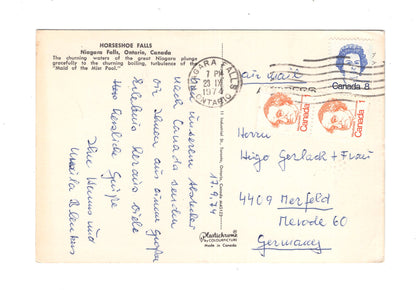 HORSESHOE FALLS
Niagara Falls, Ontario, Canada
The churning waters of the great Niagara plunge
gracefully to the churning boiling, turbulence of the
"Maid of the Mist Pool."
NIAGARA FALLS
7 PM
1974
ONTARIO
air mail
Canada 8
Canada
Canada
17.9.74
unserem
nach Canada senden
wir Ihnen aus einem großen
Erlebnis heraus viele
herzliche Grüße
Ihre Hanns und
Herrn
Hugo Gerlach + Frau
4409 Merfeld
Merode 60
Germany
Plastichrome
by COLOURPICTURE
Made in Canada